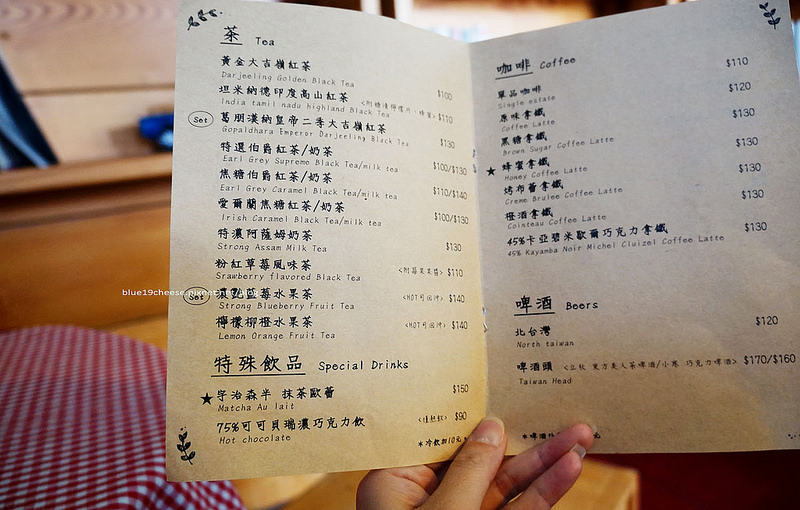 茶 Tea
黃金大吉嶺紅茶
Darjeeling Golden Black Tea $100
坦米納德印度高山紅茶
India tamil nadu highland Black Tea $110
Set 葛朋漢納皇帝二季大吉嶺紅茶
Gopaldhara Emperor Darjeeling Black Tea $130
特選伯爵紅茶/奶茶
Earl Grey Supreme Black Tea/milk tea $100/$130
焦糖伯爵紅茶/奶茶
Earl Grey Caramel Black Tea/milk tea $110/$140
愛爾蘭焦糖紅茶/奶茶
Irish Caramel Black Tea/milk tea $100/$130
特濃阿薩姆奶茶
Strong Assam Milk Tea $130
粉紅草莓風味茶
Srawberry flavored Black Tea <附莓果果醬> $110
blue19cheese.pixnet
Set 濃藍莓水果茶
Strong Blueberry Fruit Tea <HOT可回沖> $140
檸檬柳橙水果茶
Lemon Orange Fruit Tea <HOT可回沖> $140
特殊飲品 Special Drinks
★宇治森半 抹茶歐蕾
Matcha Au lait $150
75%可可貝瑞濃巧克力飲
Hot chocolate $90
*冷飲加10元*
咖啡 Coffee
單品咖啡 $110
Single estate
原味拿鐵 $120
Coffee Latte
黑糖拿鐵 $130
Brown Sugar Coffee Latte
★蜂蜜拿鐵 $130
Honey Coffee Latte
烤布蕾拿鐵 $130
Creme Brulee Coffee Latte
橙酒拿鐵 $130
Cointeau Coffee Latte
45%卡亞碧米歐爾巧克力拿鐵 $130
45% Kayamba Noir Michel Cluizel Coffee Latte
啤酒 Beers
北台灣 $120
North taiwan
啤酒頭 <立秋 東方美人茶啤酒/小寒 巧克力啤酒> $170/$160
Taiwan Head
*啤酒